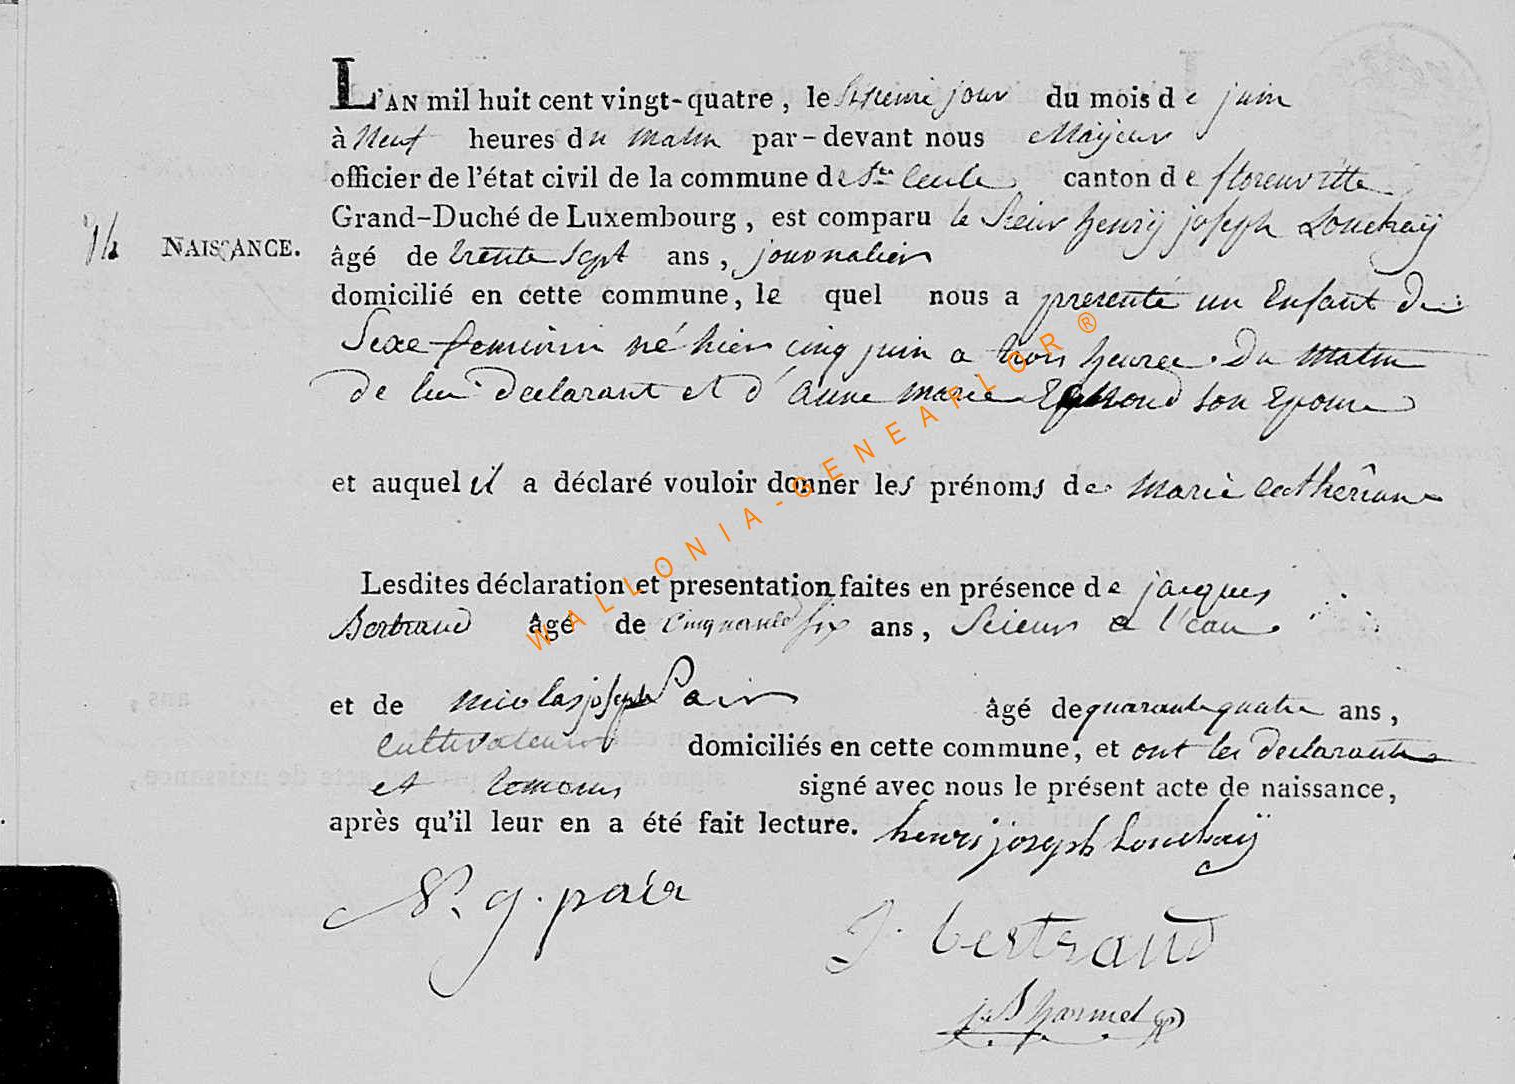 L'AN mil huit cent vingt-quatre, le Sixieme jour du mois de juin
à Neuf heures du matin par-devant nous Maÿeur
officier de l'état civil de la commune de Ste Cecile canton de florenville
Grand-Duché de Luxembourg, est comparu le Sieur henrÿ joseph Louchaÿ
NAISSANCE.
âgé de trente Sept ans, journalier
domicilié en cette commune, le quel nous a presenté un Enfant du
Sexe feminin né hier cinq juin a trois heures Du Matin
de lui declarant et d'anne marie son Epouse
et auquel il a déclaré vouloir donner les prénoms de Marie catherine
Lesdites déclaration et presentation faites en présence de jacques
Bertrand âgé de cinquante six ans, Scieur a l'eau
et de nicolas joseph Pair âgé de quarante quatre ans,
cultivateur domiciliés en cette commune, et ont les declarants
et temoins signé avec nous le présent acte de naissance,
après qu'il leur en a été fait lecture. henri joseph Louchaÿ
N. g. pair
J. bertrand
WALLONIA-GENEAFLOR ®